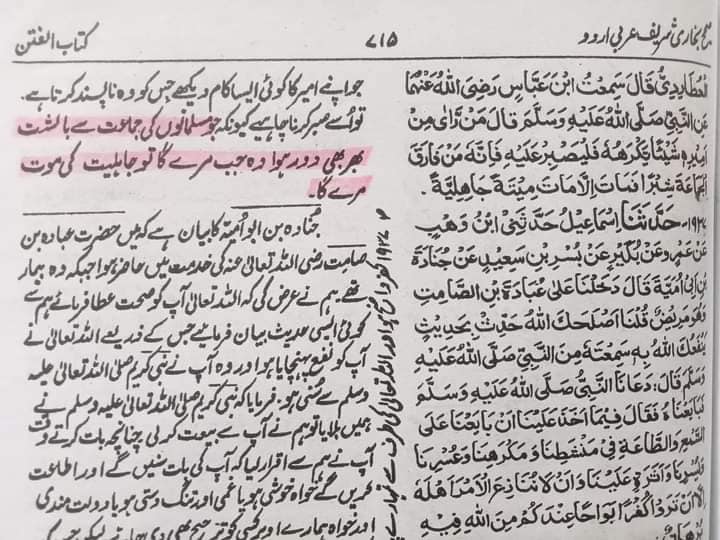 صحیح بخاری شریف عربی اردو
۷۱۵
کتاب الفتن
العُطَارِدِيُّ قَالَ سَمِعْتُ ابْنَ عَبَّاسٍ رَضِيَ اللهُ عَنْهُمَا
عَنِ النَّبِيِّ صَلَّى اللهُ عَلَيْهِ وَسَلَّمَ قَالَ مَنْ رَاٰى مِنْ
اَمِيْرِهٖ شَيْئًا يَكْرَهُهٗ فَلْيَصْبِرْ عَلَيْهِ فَاِنَّهٗ مَنْ فَارَقَ
الْجَمَاعَةَ شِبْرًا فَمَاتَ اِلَّا مَاتَ مِيْتَةً جَاهِلِيَّةً۔
۱۹۳۷- حَدَّثَنَا اِسْمَاعِيْلُ حَدَّثَنِي ابْنُ وَهْبٍ
عَنْ عَمْرٍو عَنْ بُكَيْرٍ عَنْ بُسْرِ بْنِ سَعِيْدٍ عَنْ جُنَادَةَ
بْنِ اَبِيْ اُمَيَّةَ قَالَ دَخَلْنَا عَلٰى عُبَادَةَ بْنِ الصَّامِتِ
وَهُوَ مَرِيْضٌ قُلْنَا اَصْلَحَكَ اللهُ حَدِّثْ بِحَدِيْثٍ
يَنْفَعُكَ اللهُ بِهٖ سَمِعْتَهٗ مِنَ النَّبِيِّ صَلَّى اللهُ عَلَيْهِ
وَسَلَّمَ قَالَ: دَعَانَا النَّبِيُّ صَلَّى اللهُ عَلَيْهِ وَسَلَّمَ
فَبَايَعْنَاهُ فَقَالَ فِيْمَا اَخَذَ عَلَيْنَا اَنْ بَايَعْنَا عَلَى
السَّمْعِ وَالطَّاعَةِ فِيْ مَنْشَطِنَا وَمَكْرَهِنَا وَعُسْرِنَا
وَيُسْرِنَا وَاَثَرَةٍ عَلَيْنَا وَاَنْ لَا نُنَازِعَ الْاَمْرَ اَهْلَهٗ
اِلَّا اَنْ تَرَوْا كُفْرًا بَوَاحًا عِنْدَكُمْ مِنَ اللهِ فِيْهِ
جو اپنے امیر کا کوئی ایسا کام دیکھے جس کو وہ ناپسند کرتا ہے۔
تو اُسے صبر کرنا چاہیے کیونکہ جو مسلمانوں کی جماعت سے بالشت
بھر بھی دور ہوا وہ جب مرے گا تو جاہلیت کی موت
مرے گا۔
جُنادہ بن ابو امیہ کا بیان ہے کہ میں حضرت عبادہ بن
صامت رضی اللہ تعالیٰ عنہ کی خدمت میں حاضر ہوا جبکہ وہ بیمار
تھے۔ ہم نے عرض کی کہ اللہ تعالیٰ آپ کو صحت عطا فرمائے ہم سے
کوئی ایسی حدیث بیان فرمائیے جس کے ذریعے اللہ تعالیٰ نے
آپ کو نفع پہنچایا ہو اور وہ آپ نے نبی کریم صلی اللہ تعالیٰ علیہ
وسلم سے سُنی ہو۔ فرمایا کہ نبی کریم صلی اللہ تعالیٰ علیہ وسلم نے
ہمیں بلایا تو ہم نے آپ سے بیعت کر لی چنانچہ بات کرتے وقت
آپ نے ہم سے اقرار لیا کہ آپ کی بات سنیں گے اور اطاعت
کریں گے خواہ خوشی ہو یا غمی اور تنگ دستی ہو یا دولت مندی
اور خواہ ہمارے اوپر کسی کو ترجیح بھی دی